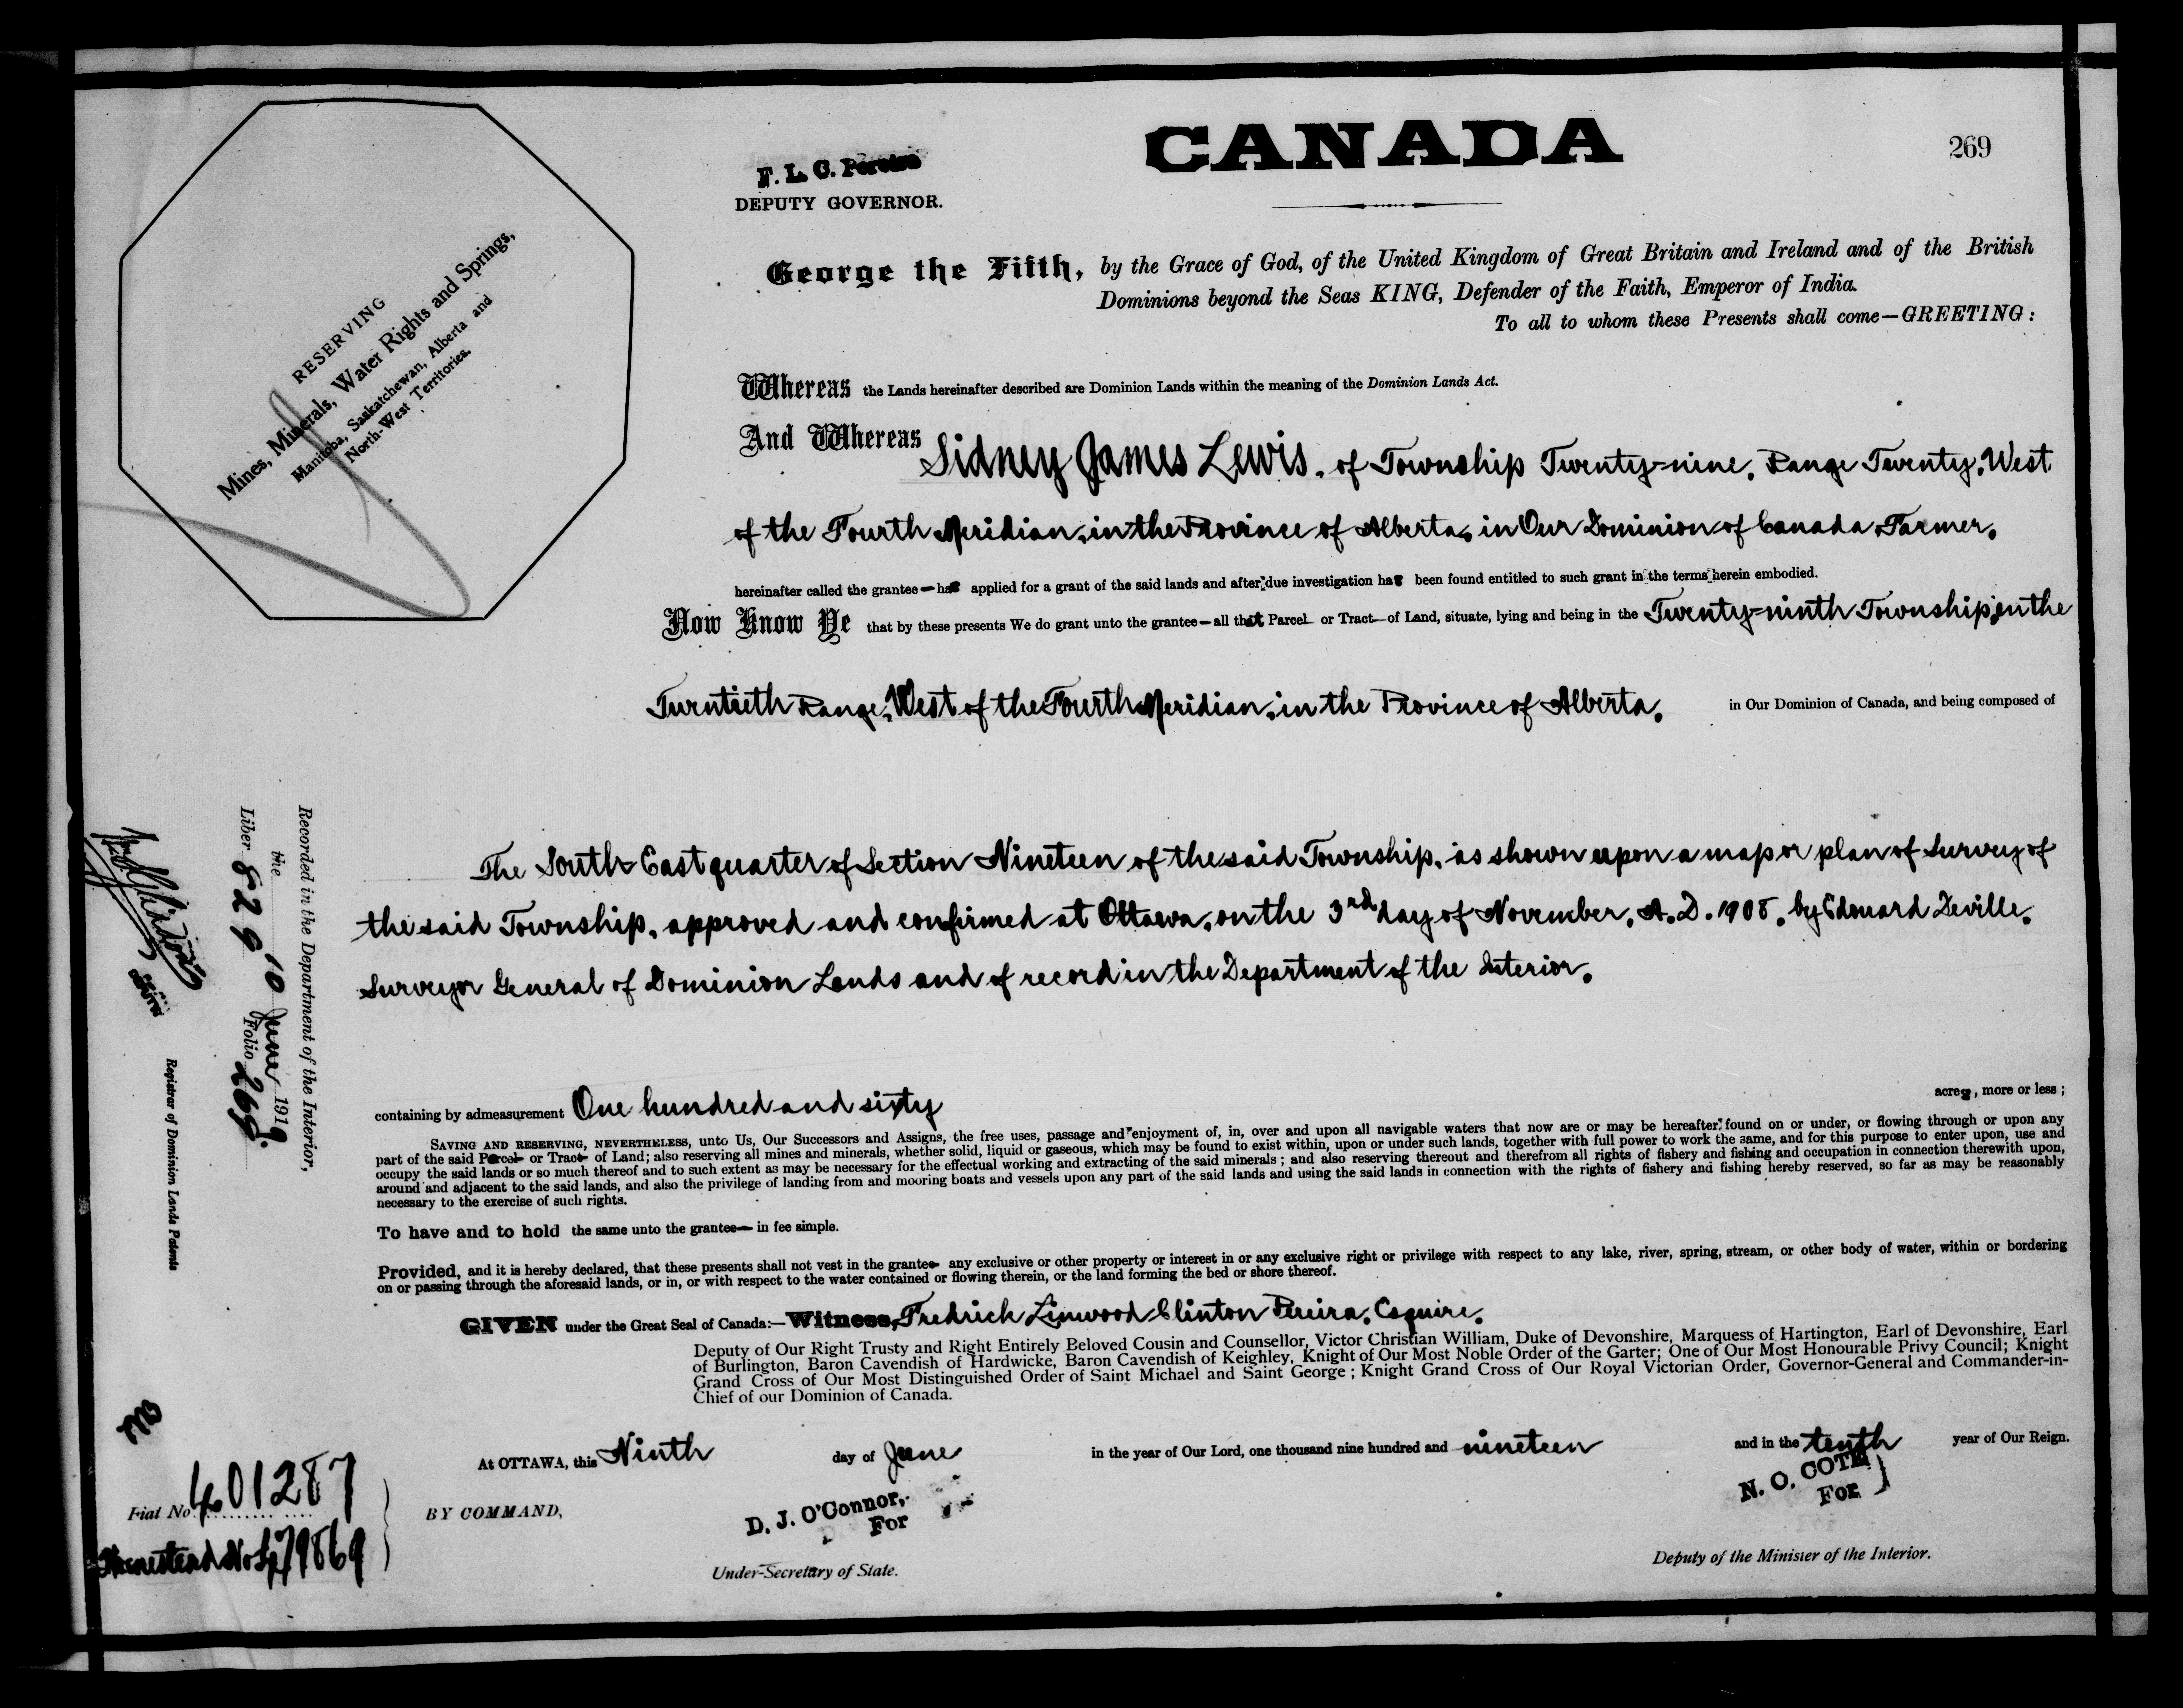 CANADA
269
F. L. C. Pereira
DEPUTY GOVERNOR.
George the Fifth, by the Grace of God, of the United Kingdom of Great Britain and Ireland and of the British
Dominions beyond the Seas KING, Defender of the Faith, Emperor of India.
To all to whom these Presents shall come—GREETING:
RESERVING
Mines, Minerals, Water Rights and Springs,
Manitoba, Saskatchewan, Alberta and
North-West Territories.
Whereas the Lands hereinafter described are Dominion Lands within the meaning of the Dominion Lands Act.
And Whereas Sidney James Lewis, of Township Twenty-nine, Range Twenty, West
of the Fourth Meridian, in the Province of Alberta, in Our Dominion of Canada, Farmer,
hereinafter called the grantee—has applied for a grant of the said lands and after due investigation has been found entitled to such grant in the terms herein embodied.
Now Know Ye that by these presents We do grant unto the grantee—all that Parcel or Tract of Land, situate, lying and being in the Twenty-ninth Township, in the
Twentieth Range, West of the Fourth Meridian, in the Province of Alberta, in Our Dominion of Canada, and being composed of
The South East quarter of Section Nineteen of the said Township, as shown upon a map or plan of survey of
the said Township, approved and confirmed at Ottawa, on the 3rd day of November, A.D. 1908, by Edouard Deville,
Surveyor General of Dominion Lands and of record in the Department of the Interior.
containing by admeasurement One hundred and sixty acres, more or less;
SAVING AND RESERVING, NEVERTHELESS, unto Us, Our Successors and Assigns, the free uses, passage and enjoyment of, in, over and upon all navigable waters that now are or may be hereafter found on or under, or flowing through or upon any
part of the said Parcel or Tract of Land; also reserving all mines and minerals, whether solid, liquid or gaseous, which may be found to exist within, upon or under such lands, together with full power to work the same, and for this purpose to enter upon, use and
occupy the said lands or so much thereof and to such extent as may be necessary for the effectual working and extracting of the said minerals; and also reserving thereout and therefrom all rights of fishery and fishing and occupation in connection therewith upon,
around and adjacent to the said lands, and also the privilege of landing from and mooring boats and vessels upon any part of the said lands and using the said lands in connection with the rights of fishery and fishing hereby reserved, so far as may be reasonably
necessary to the exercise of such rights.
To have and to hold the same unto the grantee— in fee simple.
Provided, and it is hereby declared, that these presents shall not vest in the grantee any exclusive or other property or interest in or any exclusive right or privilege with respect to any lake, river, spring, stream, or other body of water, within or bordering
on or passing through the aforesaid lands, or in, or with respect to the water contained or flowing therein, or the land forming the bed or shore thereof.
GIVEN under the Great Seal of Canada:—Witness, Fredrick Linwood Clinton Pereira, Esquire,
Deputy of Our Right Trusty and Right Entirely Beloved Cousin and Counsellor, Victor Christian William, Duke of Devonshire, Marquess of Hartington, Earl of Devonshire, Earl
of Burlington, Baron Cavendish of Hardwicke, Baron Cavendish of Keighley, Knight of Our Most Noble Order of the Garter; One of Our Most Honourable Privy Council; Knight
Grand Cross of Our Most Distinguished Order of Saint Michael and Saint George; Knight Grand Cross of Our Royal Victorian Order, Governor-General and Commander-in-
Chief of our Dominion of Canada.
At OTTAWA, this Ninth day of June in the year of Our Lord, one thousand nine hundred and nineteen and in the tenth year of Our Reign.
BY COMMAND,
D. J. O'Connor,
For
Under-Secretary of State.
N. O. COTE
For
Deputy of the Minister of the Interior.
Recorded in the Department of the Interior,
the 10 June 1919
Liber 829 Folio 269.
Registrar of Dominion Lands Patents
Fiat No. 401287
Homestead No. 479869